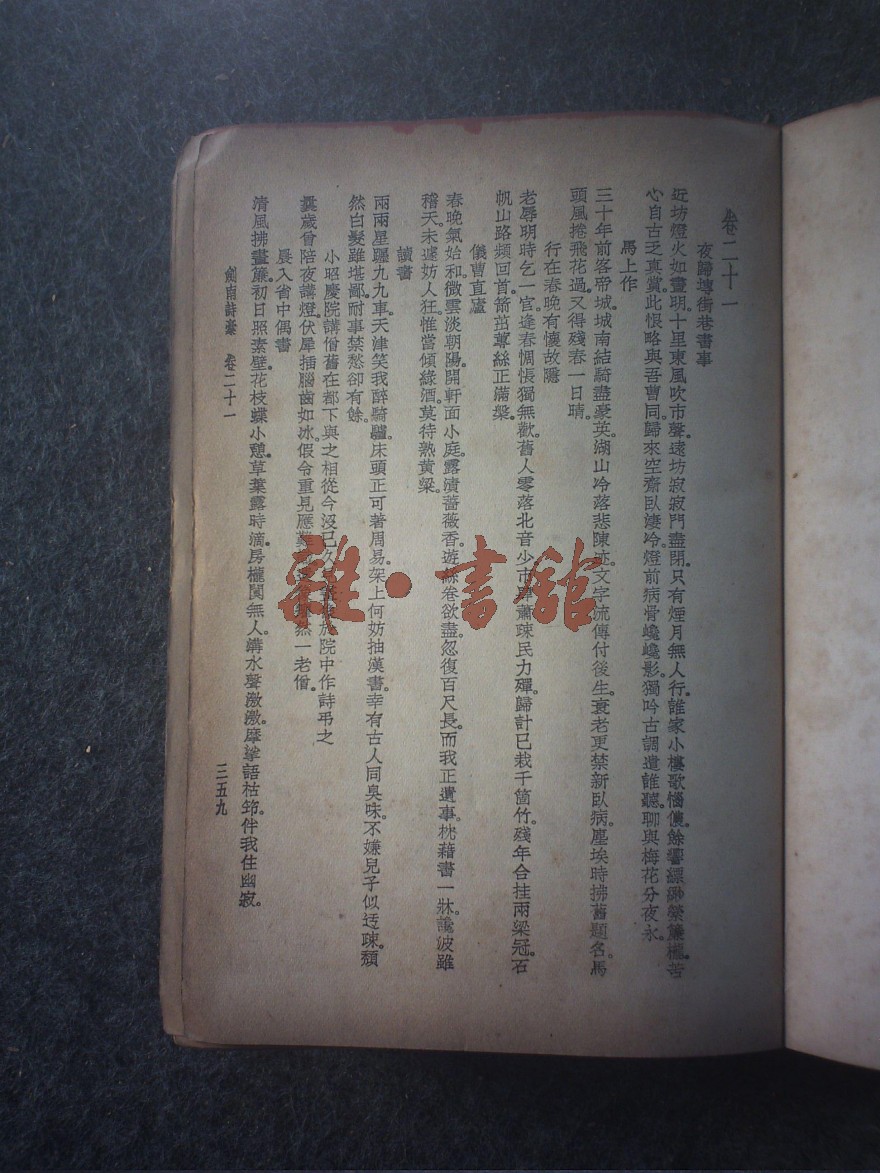 卷二十一
夜歸塼街巷書事
近坊燈火如晝明。十里東風吹市聲。遠坊寂寂門盡閉。只有煙月無人行。誰家小樓歌惱儂。餘響縹緲縈簾櫳。苦
心自古乏真賞。此恨略與吾曹同。歸來空齋臥淒冷。燈前病骨巉巉影。獨吟古調遣誰聽。聊與梅花分夜永。
馬上作
三十年前客帝城。城南結騎盡豪英。湖山冷落悲陳迹。文字流傳付後生。衰老更禁新臥病。塵埃時拂舊題名。馬
頭風捲飛花過。又得殘春一日晴。
行在春晚有懷故隱
老辱明時乞一官。逢春惆悵獨無歡。舊人零落北音少。市肆蕭疎民力殫。歸計已栽千箇竹。殘年合挂兩梁冠。石
帆山路頻回首。箭茁蓴絲正滿槃。
儀曹直廬
春晚氣始和。微雲淡朝陽。開軒面小庭。露漬薔薇香。遊絲卷欲盡。忽復百尺長。而我正遺事。枕藉書一牀。讒波雖
稽天。未遽妨人狂。惟當傾綠酒。莫待熟黃粱。
讀書
兩兩星躔九九車。天津笑我醉騎驢。床頭正可著周易。架上何妨抽漢書。幸有古人同臭味。不嫌兒子似迃疎。頹
然白髮雖堪鄙。耐事禁愁卻有餘。
小昭慶院講僧舊在都下與之相從今沒已久 院中作詩弔之
曩歲曾陪夜講燈。伏犀插腦齒如冰。假令重見應難 然一老僧。
晨入省中偶書
清風拂畫簾。初日照素壁。花枝蝶小憩。草葉露時滴。房櫳闃無人。溝水聲激激。摩挲語枯筇。伴我住幽寂。
劍南詩稾 卷二十一
三五九
雜·書館